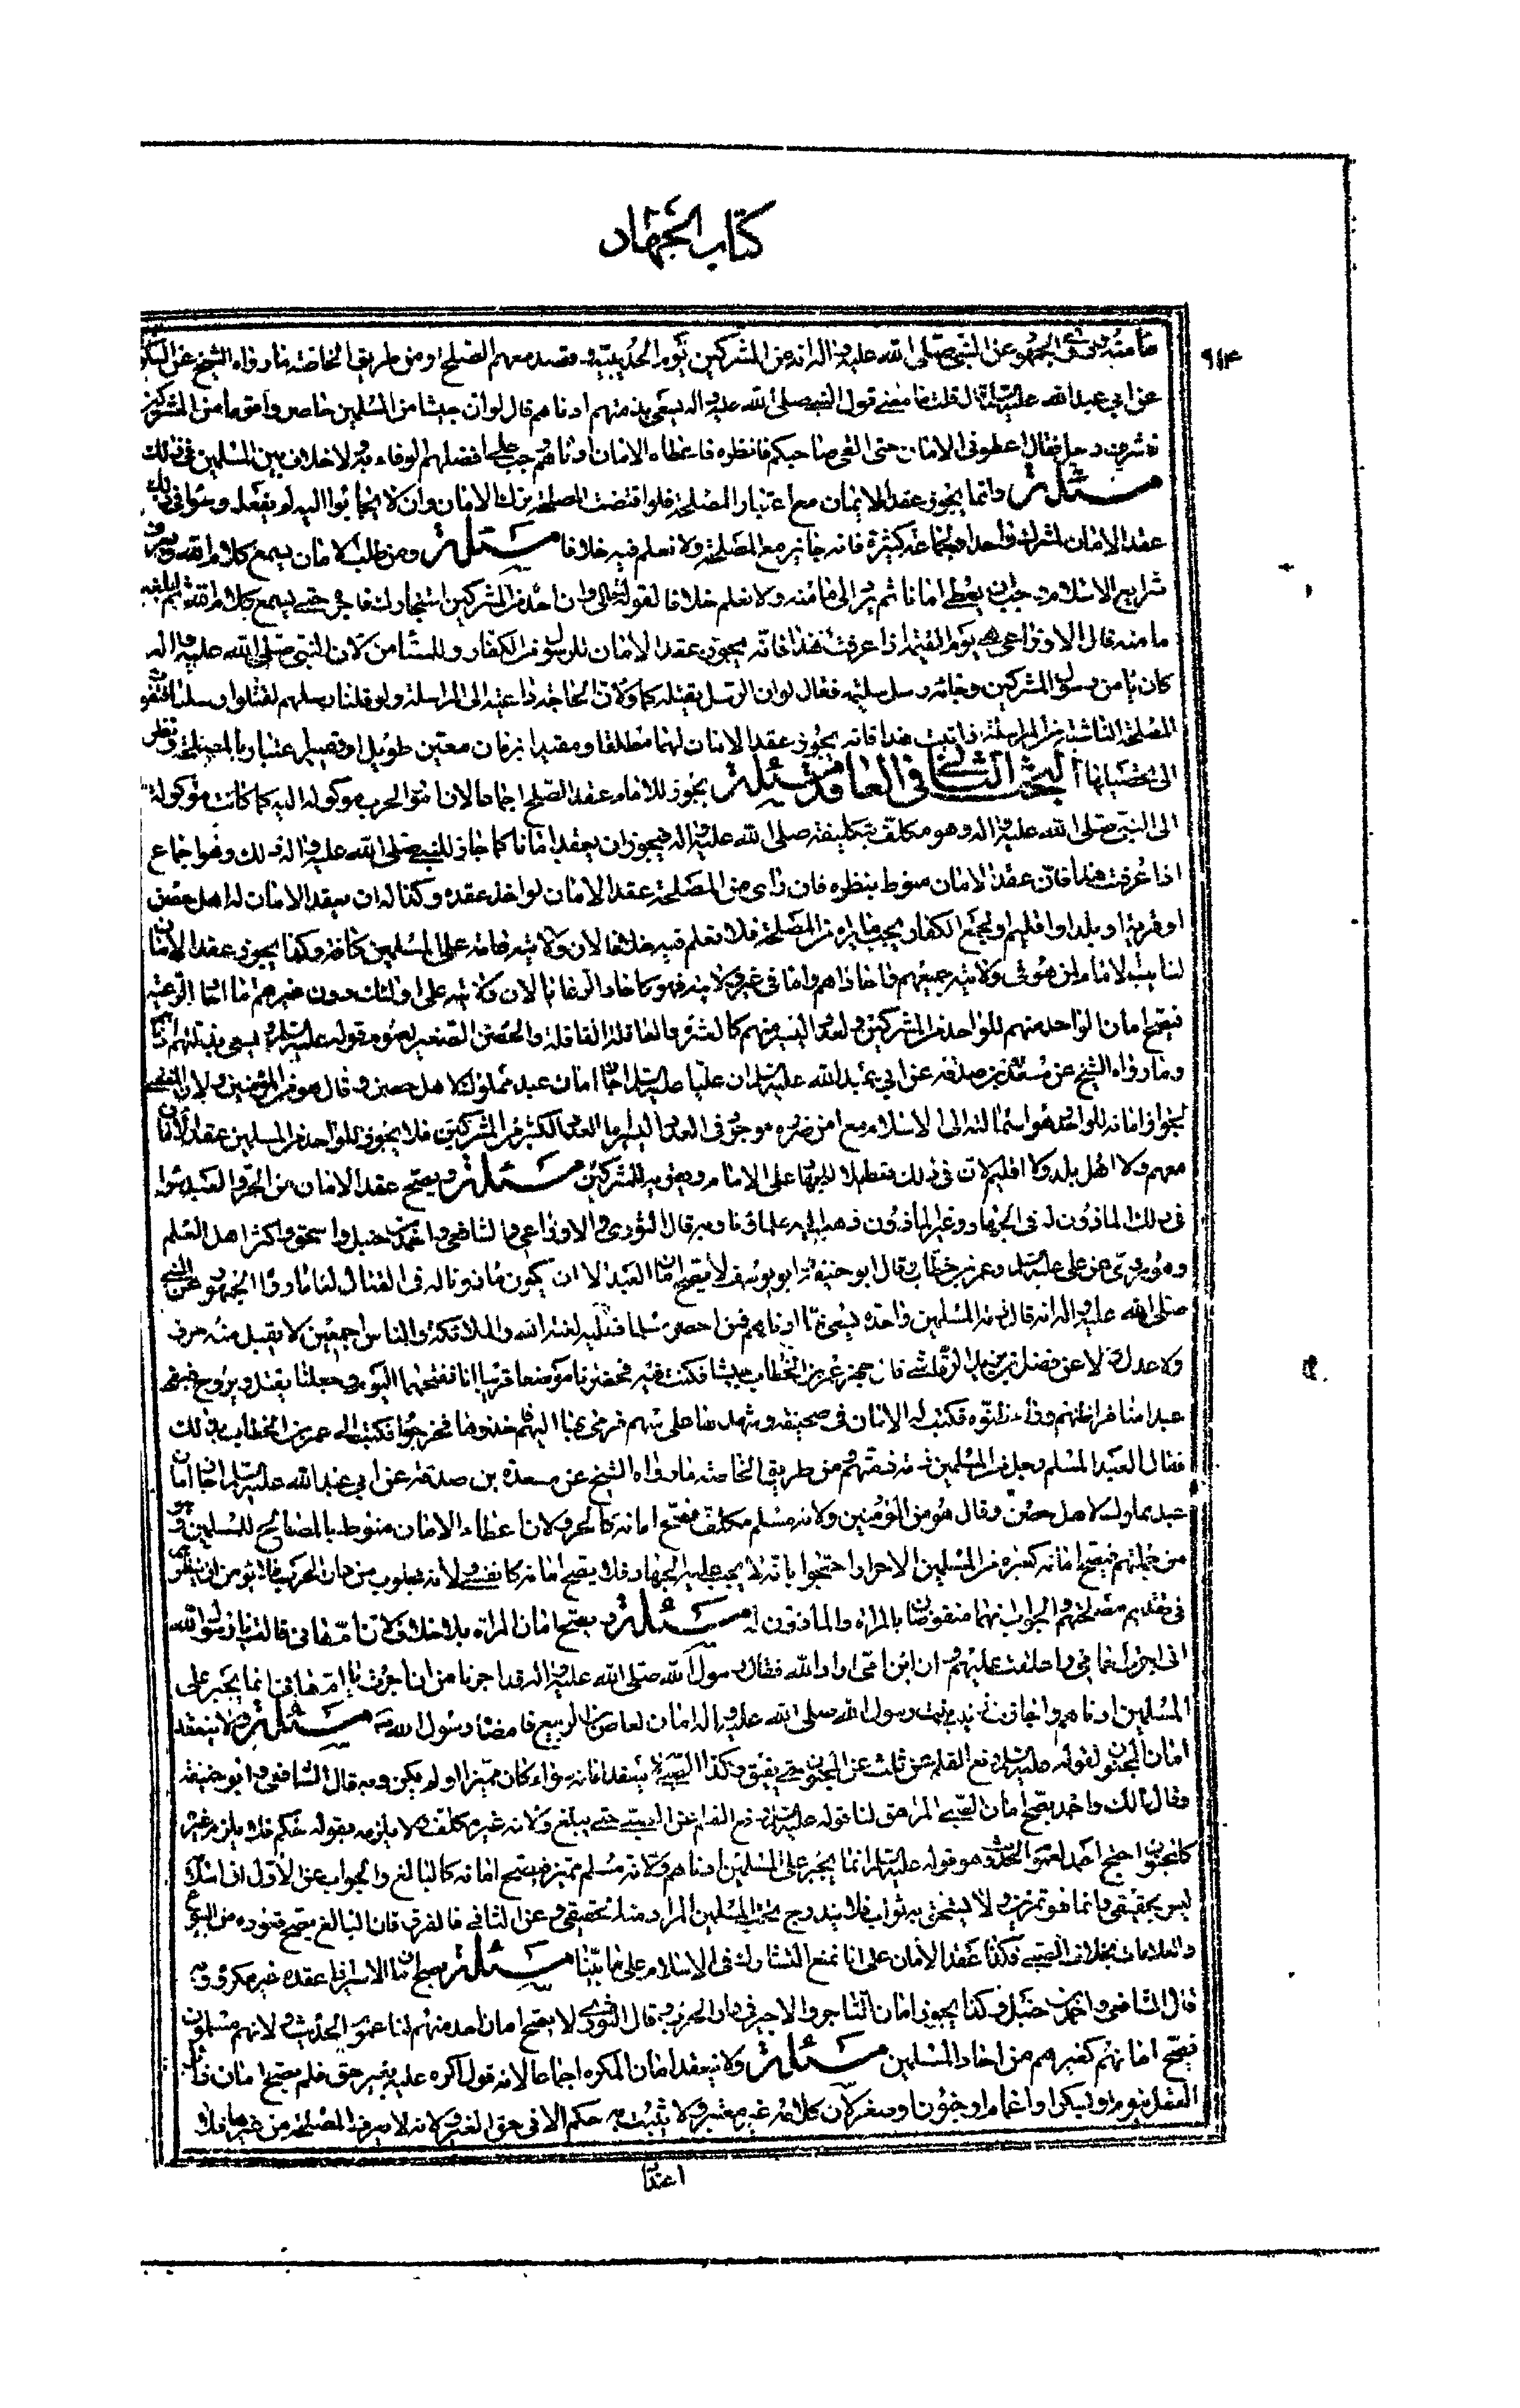 كتاب الجهاد
٩١٤
مأمنه روى الجمهور عن النبي صلى الله عليه واله انه عن المشركين يوم الحديبية وقصد معهم الصلح ومن طريق الخاصة ما رواه الشيخ عن السكوني
عن ابي عبد الله عليه السلام قال قلت ما معنى قول النبي صلى الله عليه واله يسعى بذمتهم ادناهم قال لو ان جيشا من المسلمين حاصر واقوما من المشركين
فاشرف رجل فقال اعطوني الامان حتى القى صاحبكم فانظره فاعطاه الامان ادناهم وجب على افضلهم الوفاء به ولا خلاف بين المسلمين في ذلك
مسئلة وانما يجوز عقد الامان مع اعتبار المصلحة فلو اقتضت المصلحة ترك الامان وان لا يجابوا اليه لم يفعل وسواء في ذلك
عقد الامان لمشرك واحد او لجماعة كثيرة فانه جايز مع المصلحة ولا نعلم فيه خلافا مسئلة ومن طلب الامان ليسمع كلام الله ويعرف
شرايع الاسلام وجب ان يعطى امانا ثم يرد الى مأمنه ولا نعلم خلافا لقوله تعالى وان احد من المشركين استجارك فاجره حتى يسمع كلام الله ثم ابلغه
مأمنه قال الاوزاعي هي الى يوم القيمة اذا عرفت هذا فانه يجوز عقد الامان للرسول من الكفار وللمستامن لان النبي صلى الله عليه واله
كان يامن رسول المشركين وجائه رسل مسيلمة فقال لو ان الرسل يقتل لقتلتكما ولان الحاجة داعية الى المراسلة ولو قتلنا رسلهم لقتلوا رسلنا فتفوت
المصلحة الناشئة من المراسلة اذا ثبت هذا فانه يجوز عقد الامان لهما مطلقا ومقيدا بزمان معين طويل او قصير اعتبارا بالمصلحة ونظر
الى تحصيلها البحث الثاني في العاقد مسئلة يجوز للامام عقد الصلح اجماعا لان امور الحرب موكولة اليه كما كانت موكولة
الى النبي صلى الله عليه واله وهو مكلف بتكليفه صلى الله عليه واله فيجوز ان يعقد امانا كما جاز للنبي صلى الله عليه واله ذلك وهو اجماع
اذا عرفت هذا فان عقد الامان منوط بنظره فان راى من المصلحة عقد الامان لواحد عقده وكذا له ان يعقد الامان لاهل حصن
او قرية او بلد او اقليم او لجميع الكفار بحسب ما يراه من المصلحة فلا نعلم فيه خلافا لان ولايته عامة على المسلمين كافة وكذا يجوز عقد الامان
لنايب الامام ان هو في ولايته جميعهم فاحادهم واما في غير ولايته فهو كاحاد الرعايا لان ولايته على اولئك دون غيرهم اما احاد الرعية
فيصح امان الواحد منهم للواحد من المشركين ولعدد اليسير منهم كالعشرة والقافلة القليلة والحصن الصغير لعموم قوله عليه السلام يسعى بذمتهم ادناهم
وما رواه الشيخ عن مسعدة بن صدقة عن ابي عبد الله عليه السلام ان عليا عليه السلام اجاز امان عبد مملوك لاهل حصن وقال هو من المؤمنين ولان المقتضي
لجواز امانه للواحد هو استمالته الى الاسلام مع امن ضرره موجود في العدد اليسير اما العدد الكثير من المشركين فلا يجوز للواحد من المسلمين عقد الامان
معهم ولا اهل بلد ولا اقليم لان في ذلك تعطيلا للجهاد على الامام وتقوية للمشركين مسئلة ويصح عقد الامان من الحر والعبد سواء
في ذلك الماذون له في الجهاد وغير الماذون ذهب اليه علماؤنا وبه قال الثوري والاوزاعي والشافعي واحمد بن حنبل واسحق واكثر اهل العلم
وهو مروي عن علي عليه السلام وعمر بن خطاب وقال ابو حنيفة وابو يوسف لا يصح امان العبد الا ان يكون ماذونا له في القتال لنا ما رواه الجمهور عن النبي
صلى الله عليه واله انه قال ذمة المسلمين واحدة يسعى بها ادناهم فمن اخفر مسلما فعليه لعنة الله والملائكة والناس اجمعين لا يقبل منه صرف
ولا عدل وعن فضل بن يزيد الرقاشي قال جهز عمر بن الخطاب جيشا فكنت فيه فحضرنا موضعا قريبا انا نفتحها اليوم وجعلنا نقبل ونروح فبقي
عبد منا فراطنهم وراطنوه فكتب لهم الامان في صحيفة وشدها على سهم فرمى بها اليهم فاخذوها فخرجوا فكتب الى عمر بن الخطاب بذلك
فقال العبد المسلم رجل من المسلمين ذمته ذمتهم ومن طريق الخاصة ما رواه الشيخ عن مسعدة بن صدقة عن ابي عبد الله عليه السلام اجاز امان
عبد مملوك لاهل حصن وقال هو من المؤمنين ولانه مسلم مكلف فصح امانه كالحر ولان اعطاء الامان منوط بالمصالح للمسلمين وهو
من جملتهم فيصح امانه كغيره من المسلمين الاحرار احتجوا بانه لا يجب عليه الجهاد فلا يصح امانه كالصبي ولانه مجلوب من دار الحرب فلا يؤمن ان ينظر
في تقديم مصلحتهم والجواب انهما منقوضان بالمراة والماذون له مسئلة ويصح امان المراة بلا خلاف لان ام هاني قالت يا رسول الله
اني اجرت احمائي واغلقت عليهم وان ابن امي اراد الله فقال رسول الله صلى الله عليه واله قد اجرنا من اجرت يا ام هاني انما يجير على
المسلمين ادناهم واجازت زينب بنت رسول الله صلى الله عليه واله امان لعاص بن الربيع فامضاه رسول الله ص مسئلة ولا ينعقد
امان المجنون لقوله عليه السلام رفع القلم عن ثلث عن المجنون حتى يفيق وكذا الصبي لا ينعقد امانه سواء كان مميزا او لم يكن وبه قال الشافعي وابو حنيفة
وقال مالك واحمد يصح امان الصبي المراهق لنا قوله عليه السلام رفع القلم عن الصبي حتى يبلغ ولانه غير مكلف لا يلزمه بقوله حكم فلا يلزم غيره
كالمجنون احتج احمد لعموم الحديث وهو قوله عليه السلام انما يجير على المسلمين ادناهم ولانه مسلم مميز فيصح امانه كالبالغ والجواب عن الاول ان اسلامه
ليس بحقيقي وانما هو تمرين ولا يستحق به ثواب فلا يندرج تحت المسلمين المراد منه الحقيقي وعن الثاني فالفرق فان البالغ يصح عقوده من البيوع
والمعاملات بخلاف الصبي فكذا عقد الامان على انا نمنع التساوي في الاسلام على ما بينا مسئلة يصح امان الاسير اذا عقده غير مكره وبه
قال الشافعي واحمد بن حنبل وكذا يجوز امان التاجر والاجير في دار الحرب وقال الثوري لا يصح امان احد منهم لنا عموم الحديث ولانهم مسلمون
فيصح امانهم كغيرهم من احاد المسلمين مسئلة ولا ينعقد امان المكره اجماعا لانه قول اكره عليه بغير حق فلم يصح امان زائل
العقل بنوم او سكر او اغماء او جنون او صغر لان كلامه غير معتبر ولا يثبت به حكم الا في حق الغير ولانه لا يعرف المصلحة من غيرها فلا
اعتداد